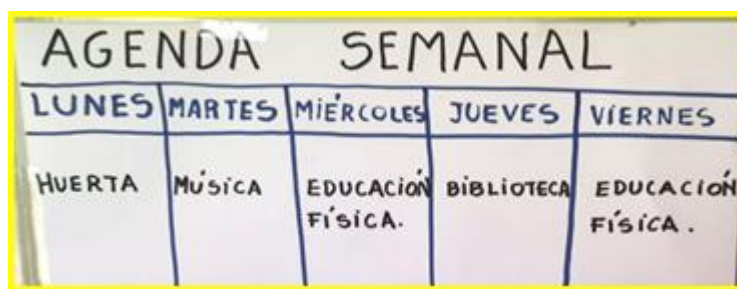 AGENDA SEMANAL
LUNES MARTES MIÉRCOLES JUEVES VIERNES
HUERTA MÚSICA EDUCACIÓN BIBLIOTECA EDUCACIÓN
FÍSICA. FÍSICA.